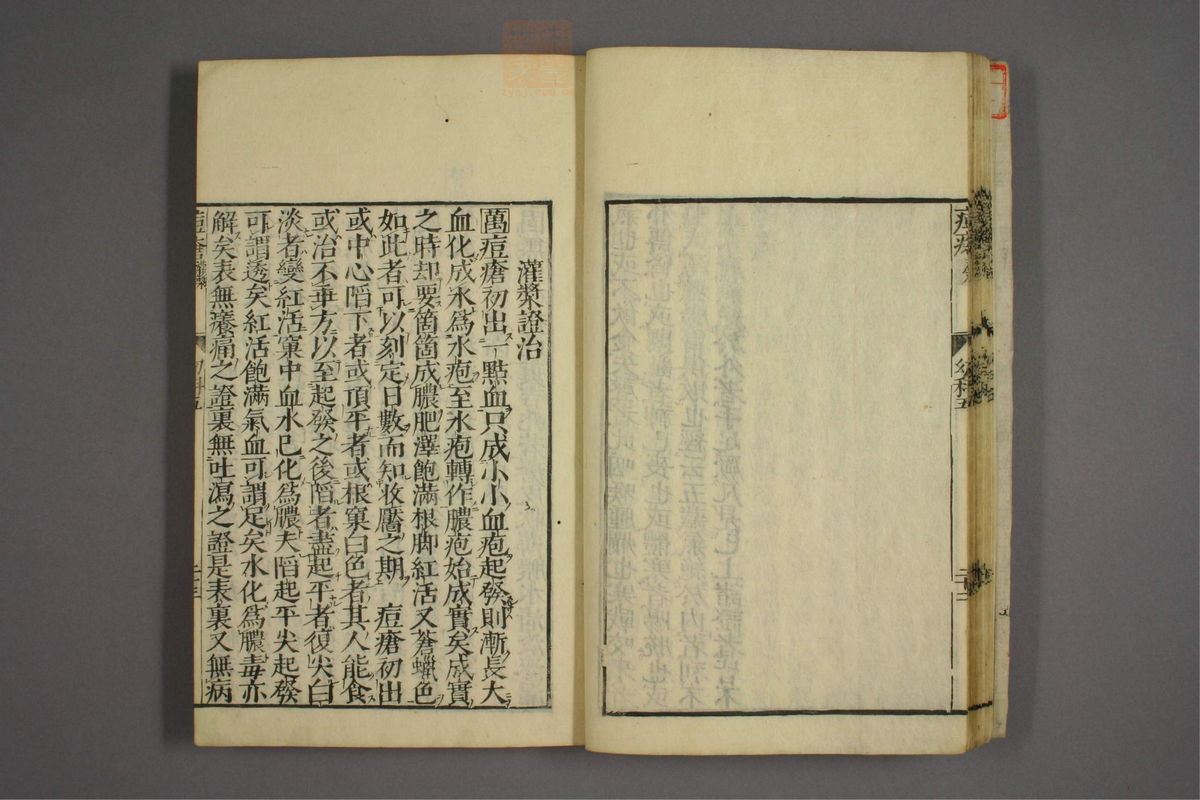 痘瘡
幼科五
二十二
灌漿證治
萬痘瘡初出一點血只成小小血疱起發則漸長大
血化成水爲水疱至水疱轉作膿疱始成實矣成實
之時却要箇箇成膿肥澤飽滿根脚紅活又蒼蠟色
如此者可以刻定日數而知收靨之期　痘瘡初出
或中心陷下者或頂平者或根窠白色者其人能食
或治不乖方以至起發之後陷者盡起平者復尖白
淡者變紅活窠中血水已化爲膿夫陷起平尖起發
可謂透矣紅活飽滿氣血可謂足矣水化爲膿毒亦
解矣表無癢痛之證裏無吐瀉之證是表裏又無病
痘瘡灌漿
幼科五
二十三